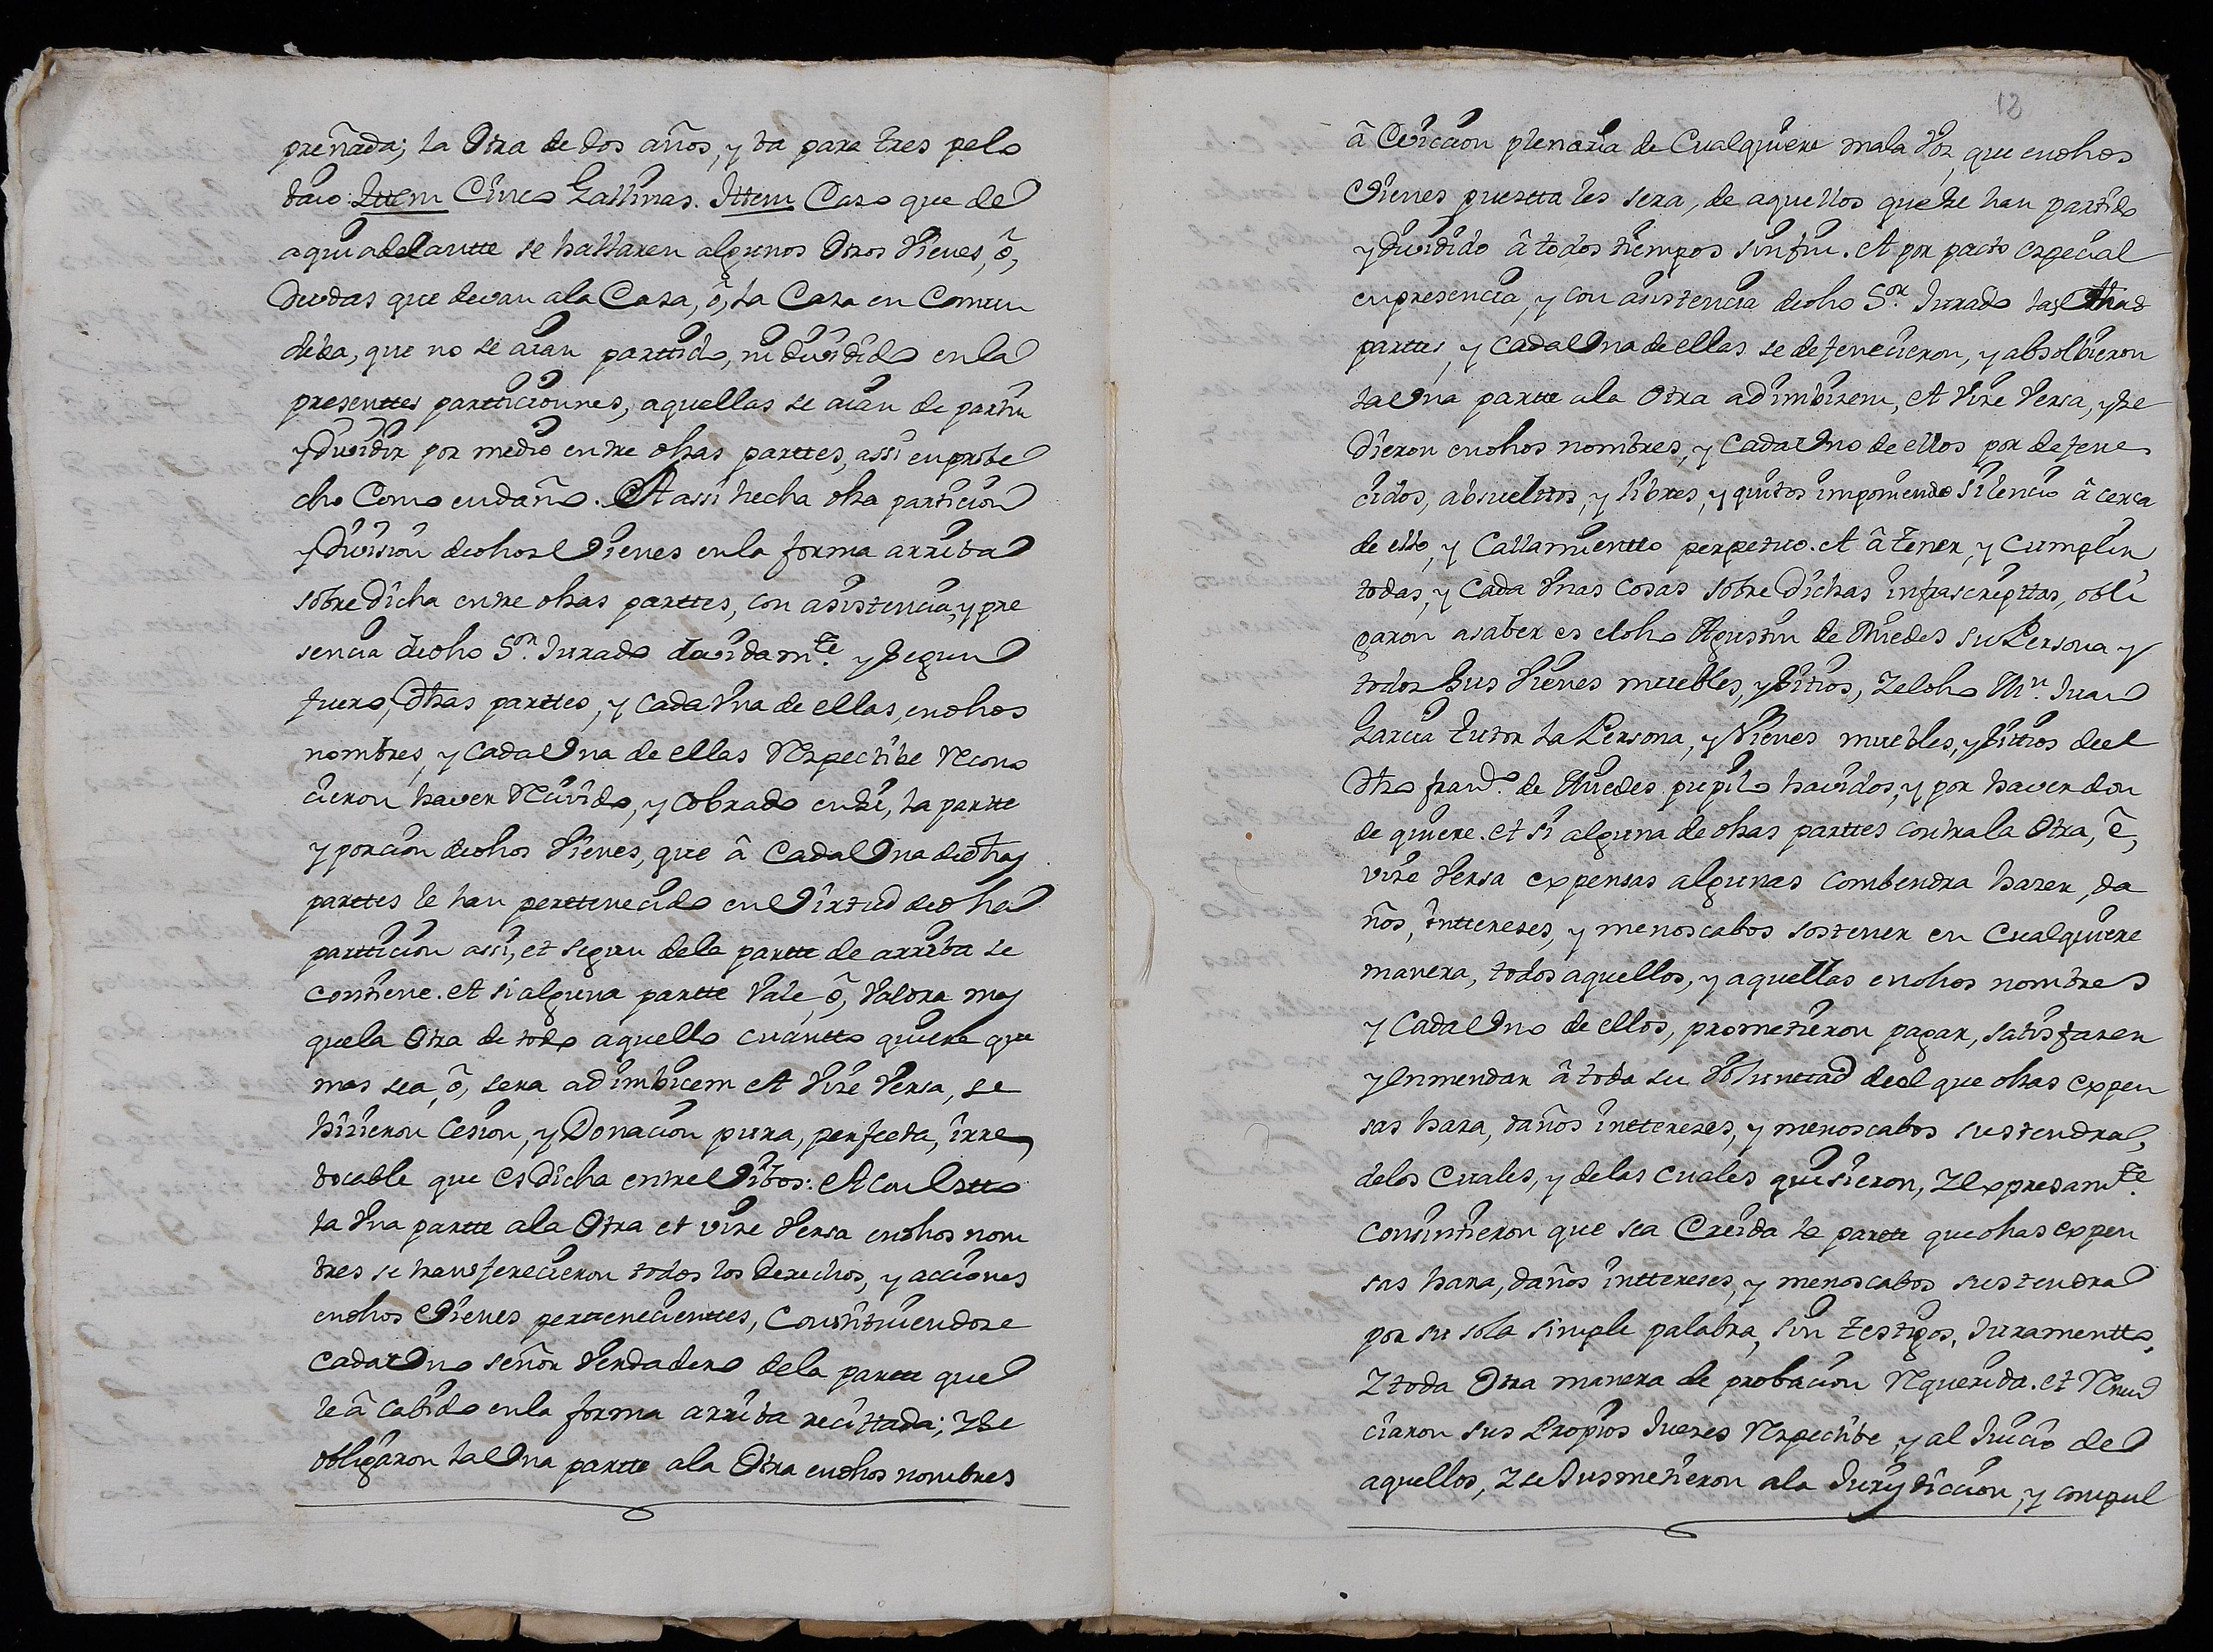 preñada; la Otra de dos años, y va para tres pelo
baio. Ittem Cinco Gallinas. Ittem Caso que de
aqui adelantte se hallaren algunos Otros Vienes, ô,
Deudas que devan ala Casa, ô, la Casa en Comun
deba, que no se aian parttido, ni dividido en la
presenttes partticiounes, aquellas se aian de partir
y Dividir por medio entre dhas parttes, assi en probe
cho Como en daño. Et assi hecha dha particion
y Division de dhos Vienes en la forma arriba
sobre Dicha entre dhas parttes, con asistencia, y pre
sencia de dho Sor. Jurado devidamte. y segun
fuero, Dhas parttes, y cada Una de ellas, en dhos
nombres, y cada Una de ellas Respectibe Recono
cieron haver Recivido, y cobrado en si, la partte
y porcion de dhos Vienes, que â Cada Una de dhas
parttes le han perttenecido en Virtud de dha
partticion assi, et segun dela partte de arriba se
contiene. et si alguna partte Vale, ô, Valdra mas
que la Otra de todo aquello cuantto quiere que
mas sea, ô, sera ad imbicem et Vize Versa, se
hizieron Cesion, y Donacion pura, perfecta, irre
vocable que es dicha entre Vibos: Et con Estto
la Una partte ala Otra et vize Versa en dhos nom
bres se transferecieron todos los Derechos, y acciones
en dhos Vienes pertteneciențtes, Constituiendose
cada Uno señor Verdadero dela partte que
le â cabido en la forma arriba recittada; Y se
obligaron la Una partte ala Otra en dhos nombres
12
â Eviccion plenaria de Cualquiere mala Voz, que en dhos
Vienes puestta les sera, de aquellos que se han partido
y dividido â todos tiempos sin fin. Et por pacto especial
en presencia, y con asistencia de dho Sor. Jurado las dhas
parttes, y Cada Una de ellas se defenecieron, y absolbieron
la Una partte ala Otra ad imbizem, et Vize Versa, y se
Dieron en dhos nombres, y Cada Uno de ellos por defene
cidos, absuelttos, y libres, y quitos imponiendo silencio â cerca
de ello, y Callamientto perpetuo. Et â tener, y Cumplir
todas, y Cada Unas cosas sobre Dichas infrascripttas, obli
garon asaber es el dho Agustin de Miedes su Persona y
todos sus Vienes muebles, y sitios, Y el dho Mn. Juan
Garcia Tutor la Persona, y Vienes muebles, y sittios de el
Dho Frando. de Miedes pupilo havidos, y por haver don
de quiere. et si alguna de dhas parttes contra la Otra, ê,
vize Versa expensas algunas combendra hazer, da
ños, inttereses, y menoscabos sostener en Cualquiere
manera, todos aquellos, y aquellas en dhos nombres
y Cada Uno de ellos, prometieron pagar, satisfazer
y enmendar â toda su Voluntad de el que dhas expen
sas hara, daños inttereses, y menoscabos sustendra,
delos Cuales, y delas cuales quisieron, Y Expresamte.
Consintieron que sea Creida la partte que dhas expen
sas hara, daños inttereses, y menoscabos sustendra
por su sola simple palabra, sin testigos, Juramentto,
Y toda Otra manera de probacion Requerida. et Renun
ciaron sus Propios Juezes Respectibe, y al Juicio de
aquellos, Y se Jusmetieron ala Jurisdiccion, y compul